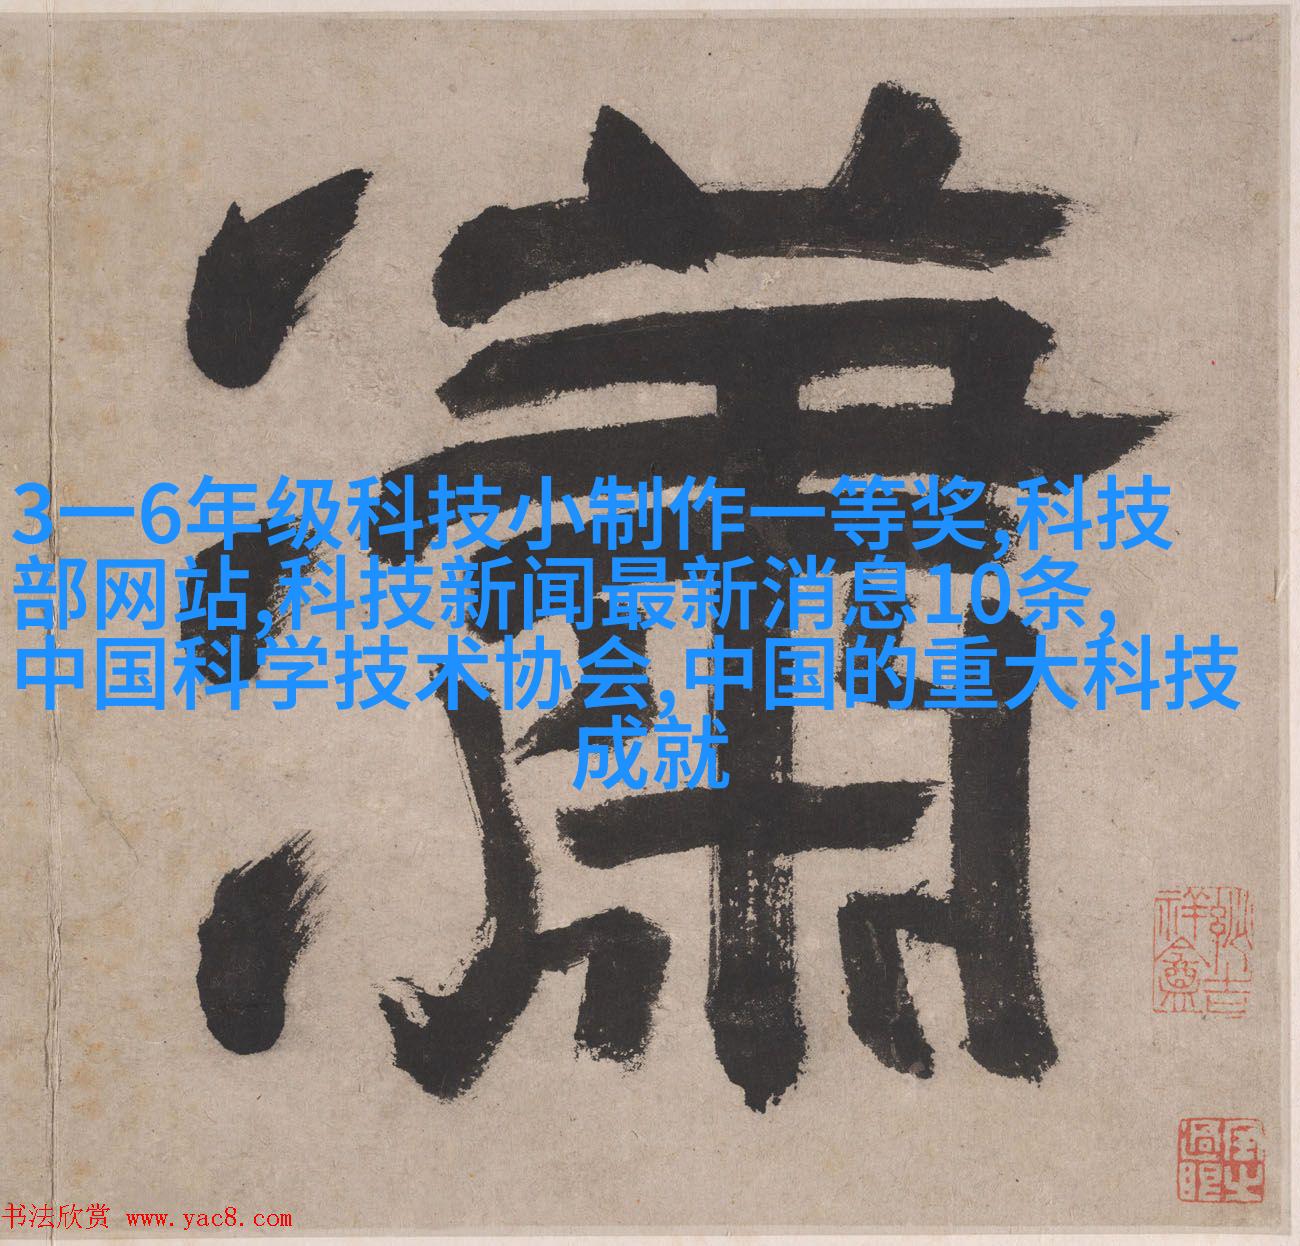 瀟
3一6年级科技小制作一等奖,科技
部网站,科技新闻最新消息10条,
中国科学技术协会,中国的重大科技
成就
书法欣赏 www.yac8.com